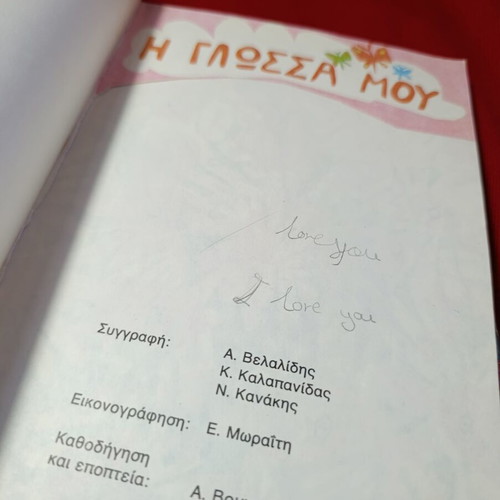 Η ΓΛΩΣΣΑ ΜΟΥ
/ love you
I love you
Συγγραφή:
Α. Βελαλίδης
Κ. Καλαπανίδας
Ν. Κανάκης
Εικονογράφηση: Ε. Μωραΐτη
Καθοδήγηση
και εποπτεία:
Α.